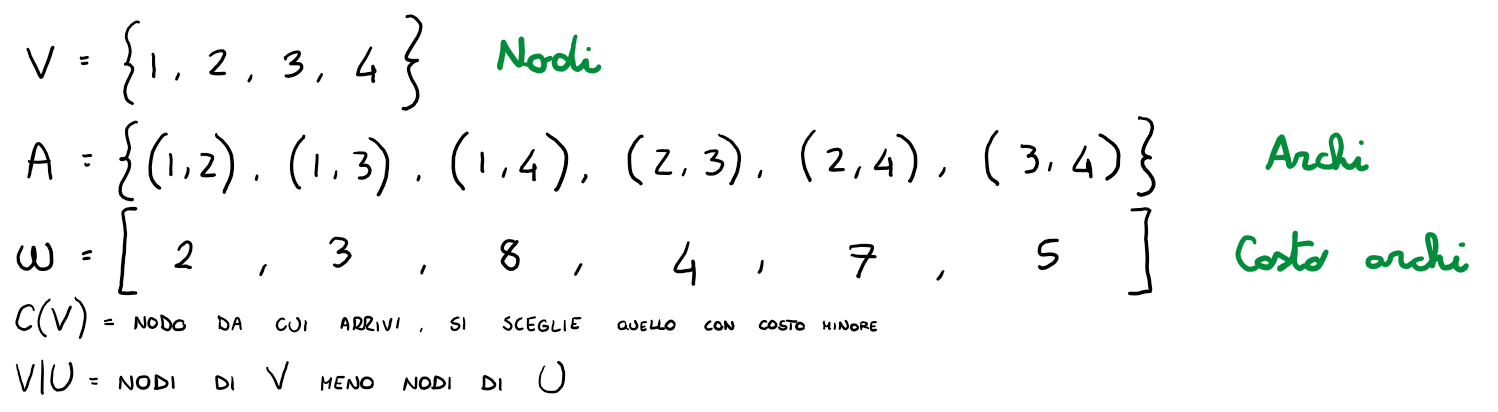 V = {1, 2, 3, 4} Nodi
A = {(1,2), (1,3), (1,4), (2,3), (2,4), (3,4)} Archi
ω = [2, 3, 8, 4, 7, 5] Costo archi
C(V) = NODO DA CUI ARRIVI, SI SCEGLIE QUELLO CON COSTO MINORE
V|U = NODI DI V MENO NODI DI U